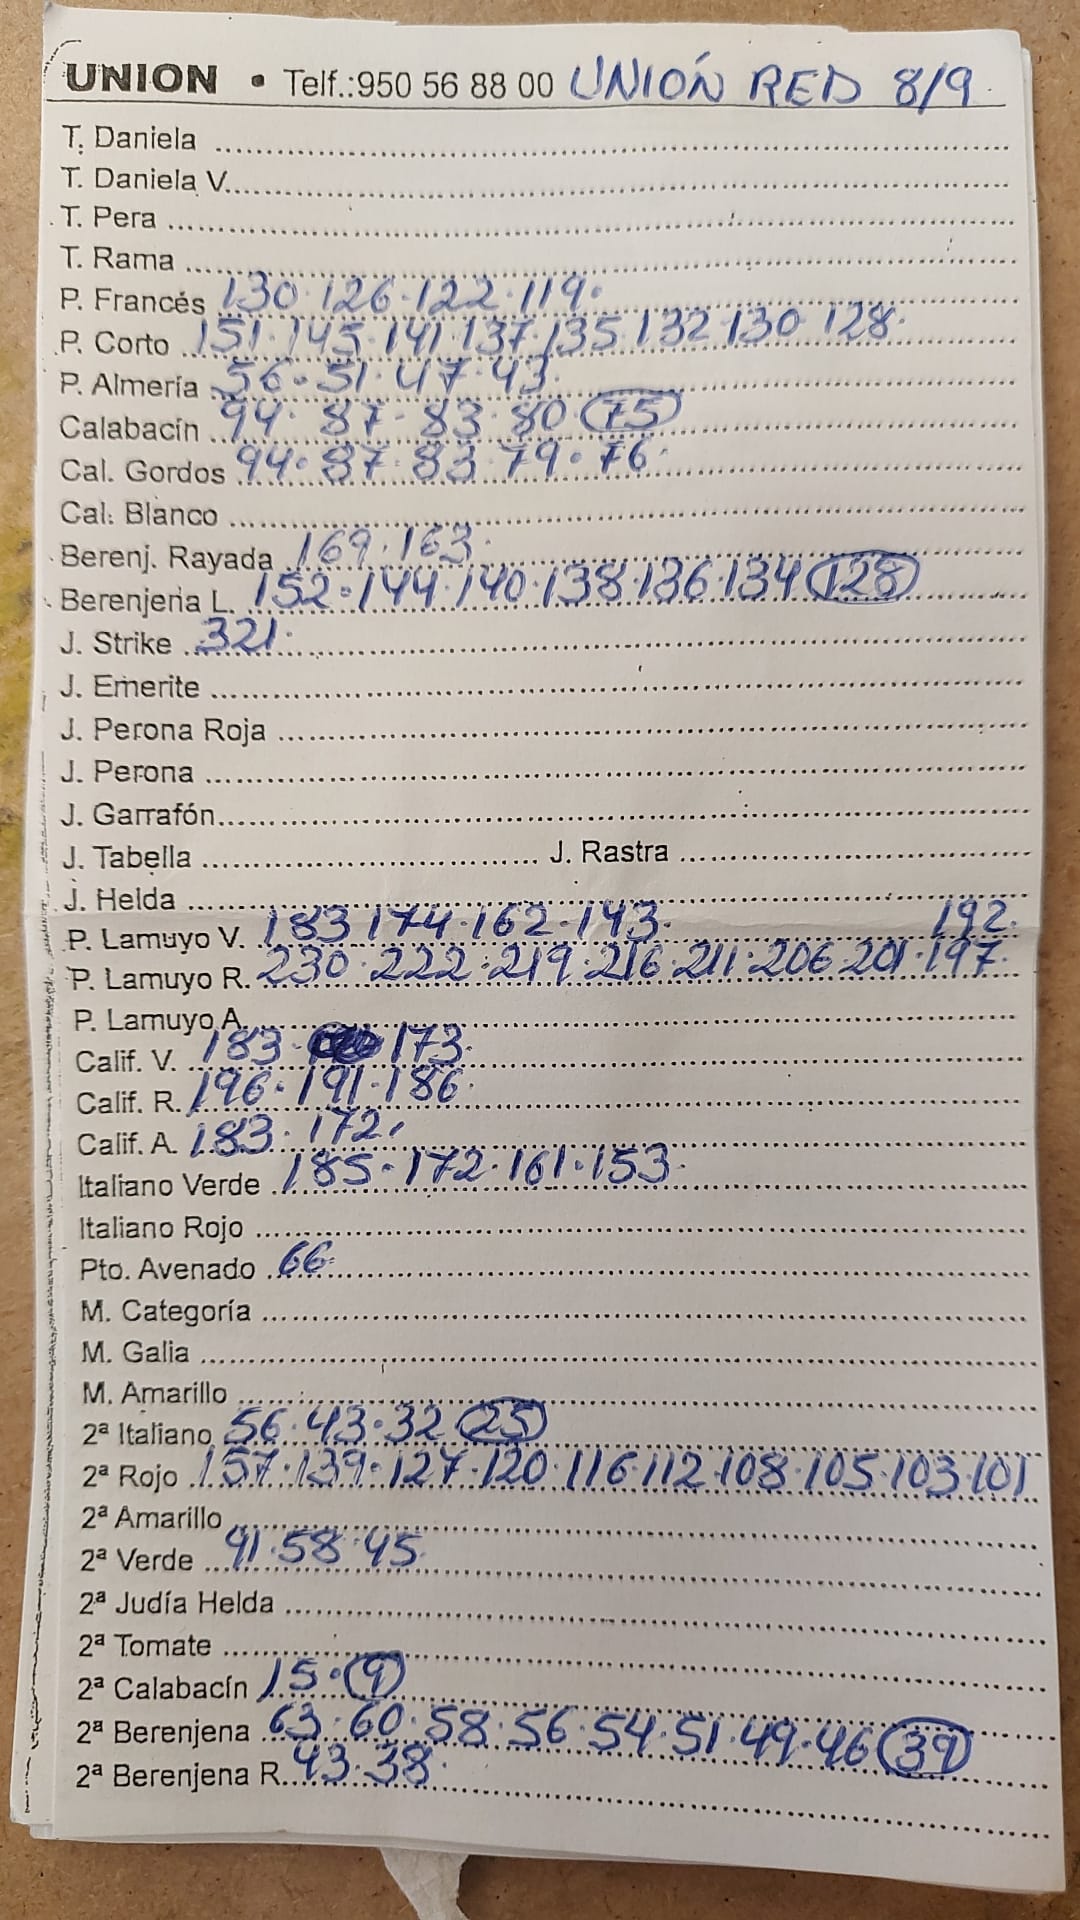 UNION • Telf.:950 56 88 00 UNIÓN RED 8/9
T. Daniela
T. Daniela V.
T. Pera
T. Rama
P. Francés 130·126·122·119·
P. Corto 151·145·141·137·135·132·130 128·
P. Almería 56·51·47·43·
Calabacín 94·87·83·80 75
Cal. Gordos 94·87·83·79·76·
Cal. Blanco
Berenj. Rayada 169·163·
Berenjena L. 152·144·140·138·136·134 128
J. Strike 321·
J. Emerite
J. Perona Roja
J. Perona
J. Garrafón
J. Tabella J. Rastra
J. Helda
P. Lamuyo V. 183 174·162·143· 192·
P. Lamuyo R. 230·222·219·216·211·206·201·197·
P. Lamuyo A.
Calif. V. 183· 173·
Calif. R. 196·191·186·
Calif. A. 183·172,
Italiano Verde 185·172·161·153·
Italiano Rojo
Pto. Avenado 66·
M. Categoría
M. Galia
M. Amarillo
2ª Italiano 56·43·32 25
2ª Rojo 157·139·127·120·116·112·108·105·103·101
2ª Amarillo
2ª Verde 91·58·45·
2ª Judía Helda
2ª Tomate
2ª Calabacín 15·9
2ª Berenjena 63·60·58·56·54·51·49·46 39
2ª Berenjena R. 43·38·